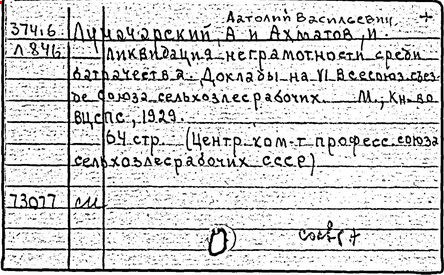 Анатолий Васильевич +
374.6 Луначарский, А и Ахматов, И.
Л 846 Ликвидация неграмотности среди
батрачества. Доклады на VI Всесоюз. съез-
де Союза сельхозлесрабочих. М., Кн-во
ВЦСПС, 1929.
64 стр. (Центр. ком-т професс. союза
сельхозлесрабочих СССР)
73077